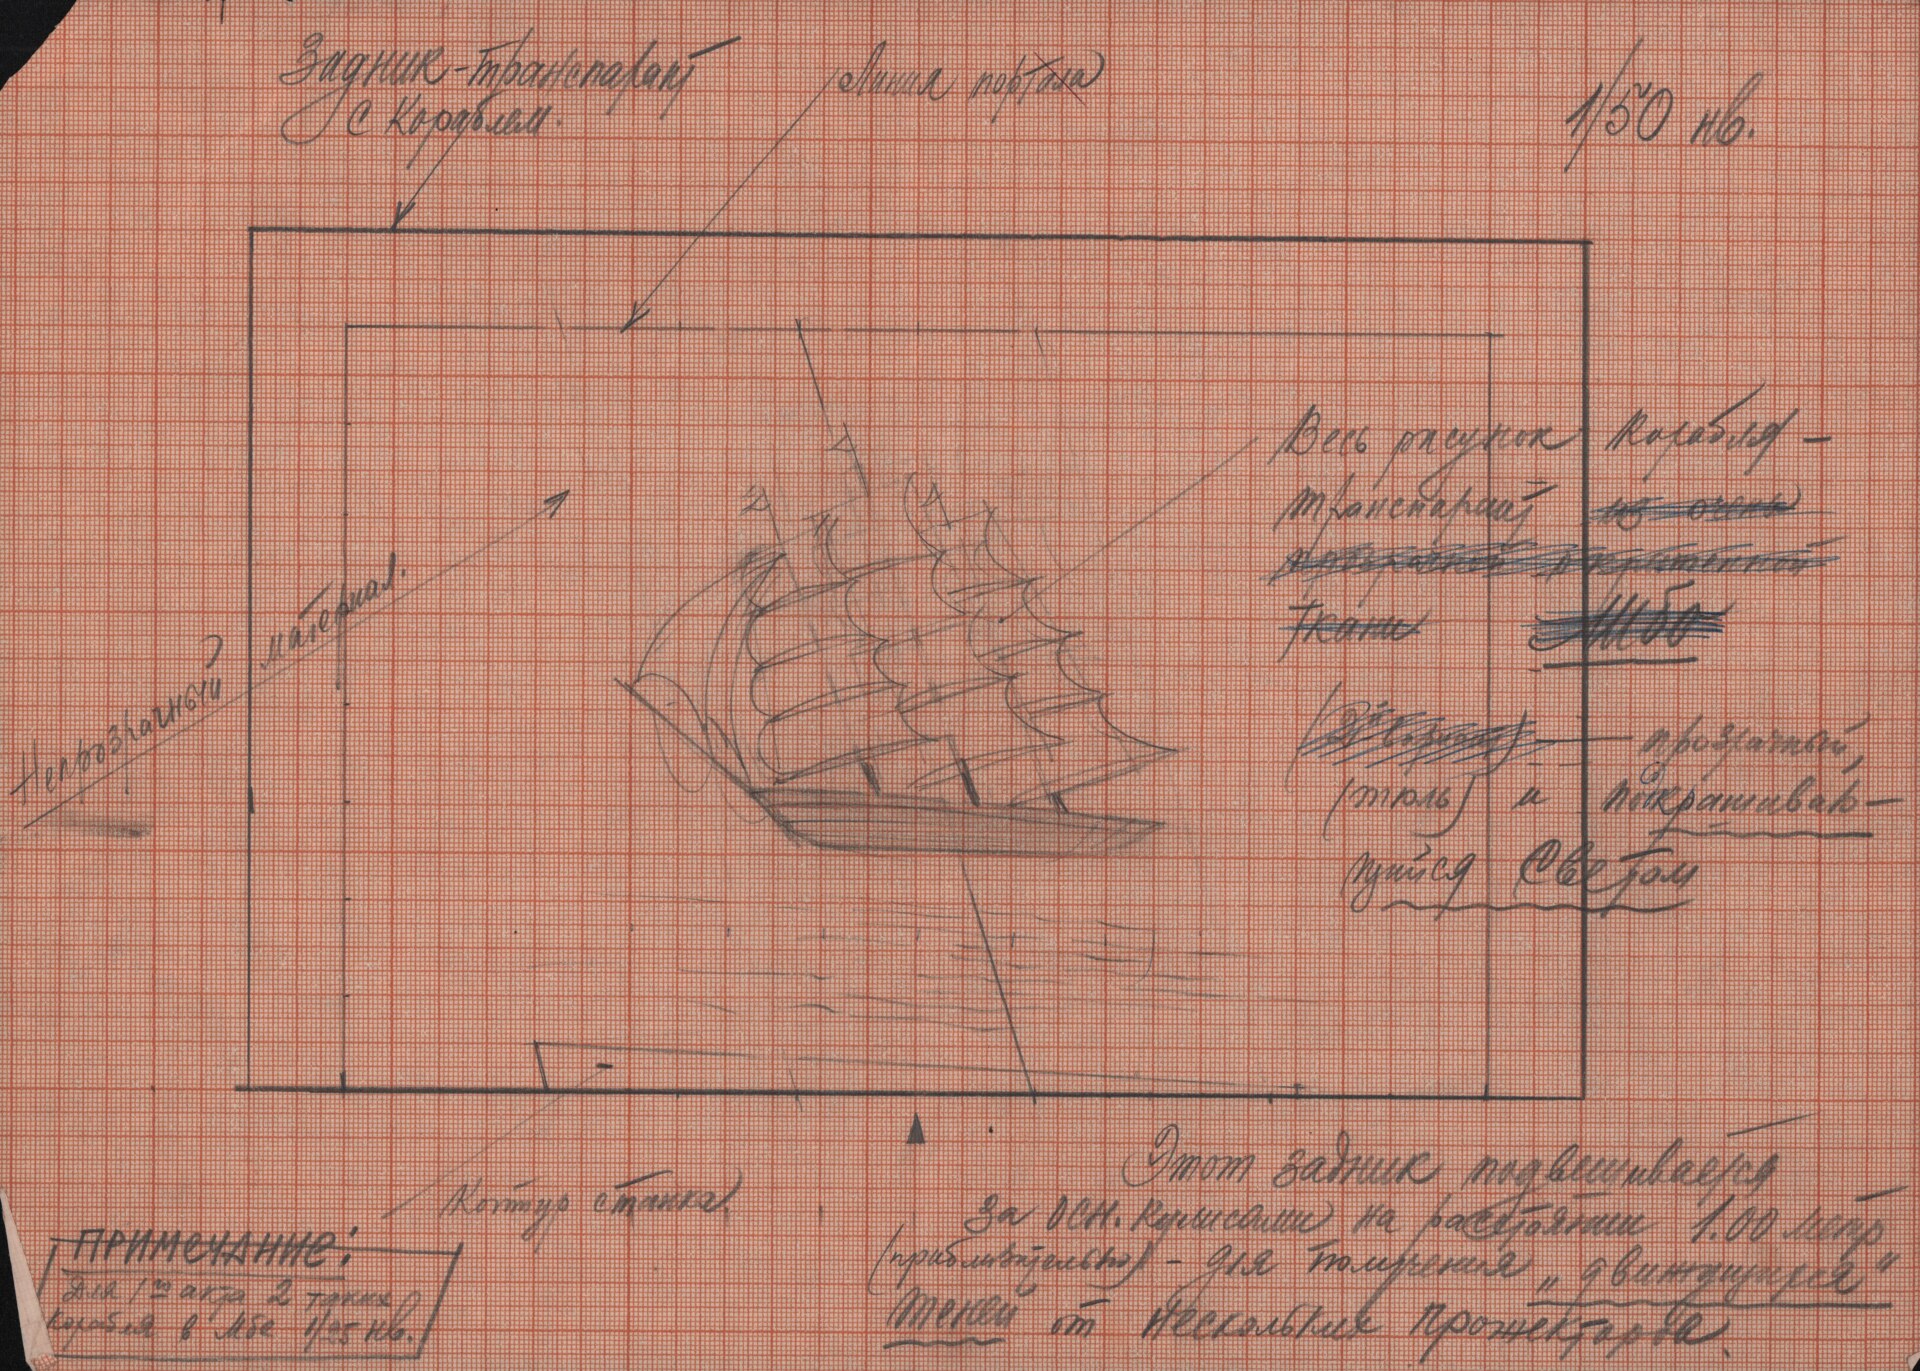 Задник-транспарант
с Кораблем.
Линия портала
1/50 нв.
Весь рисунок Корабля –
транспарант из очень
ткани
прозрачный,
(тюль) и подкрашиваю–
щийся Светом
Непрозрачный материал.
Контур станка.
Этот задник подвешивается
за осн. кулисами на расстоянии 1.00 метр
(приблизительно) – для получения „движущихся"
теней от нескольких прожекторов.
ПРИМЕЧАНИЕ:
Для 1го акта 2
Корабля в Мбе 1/25 нв.